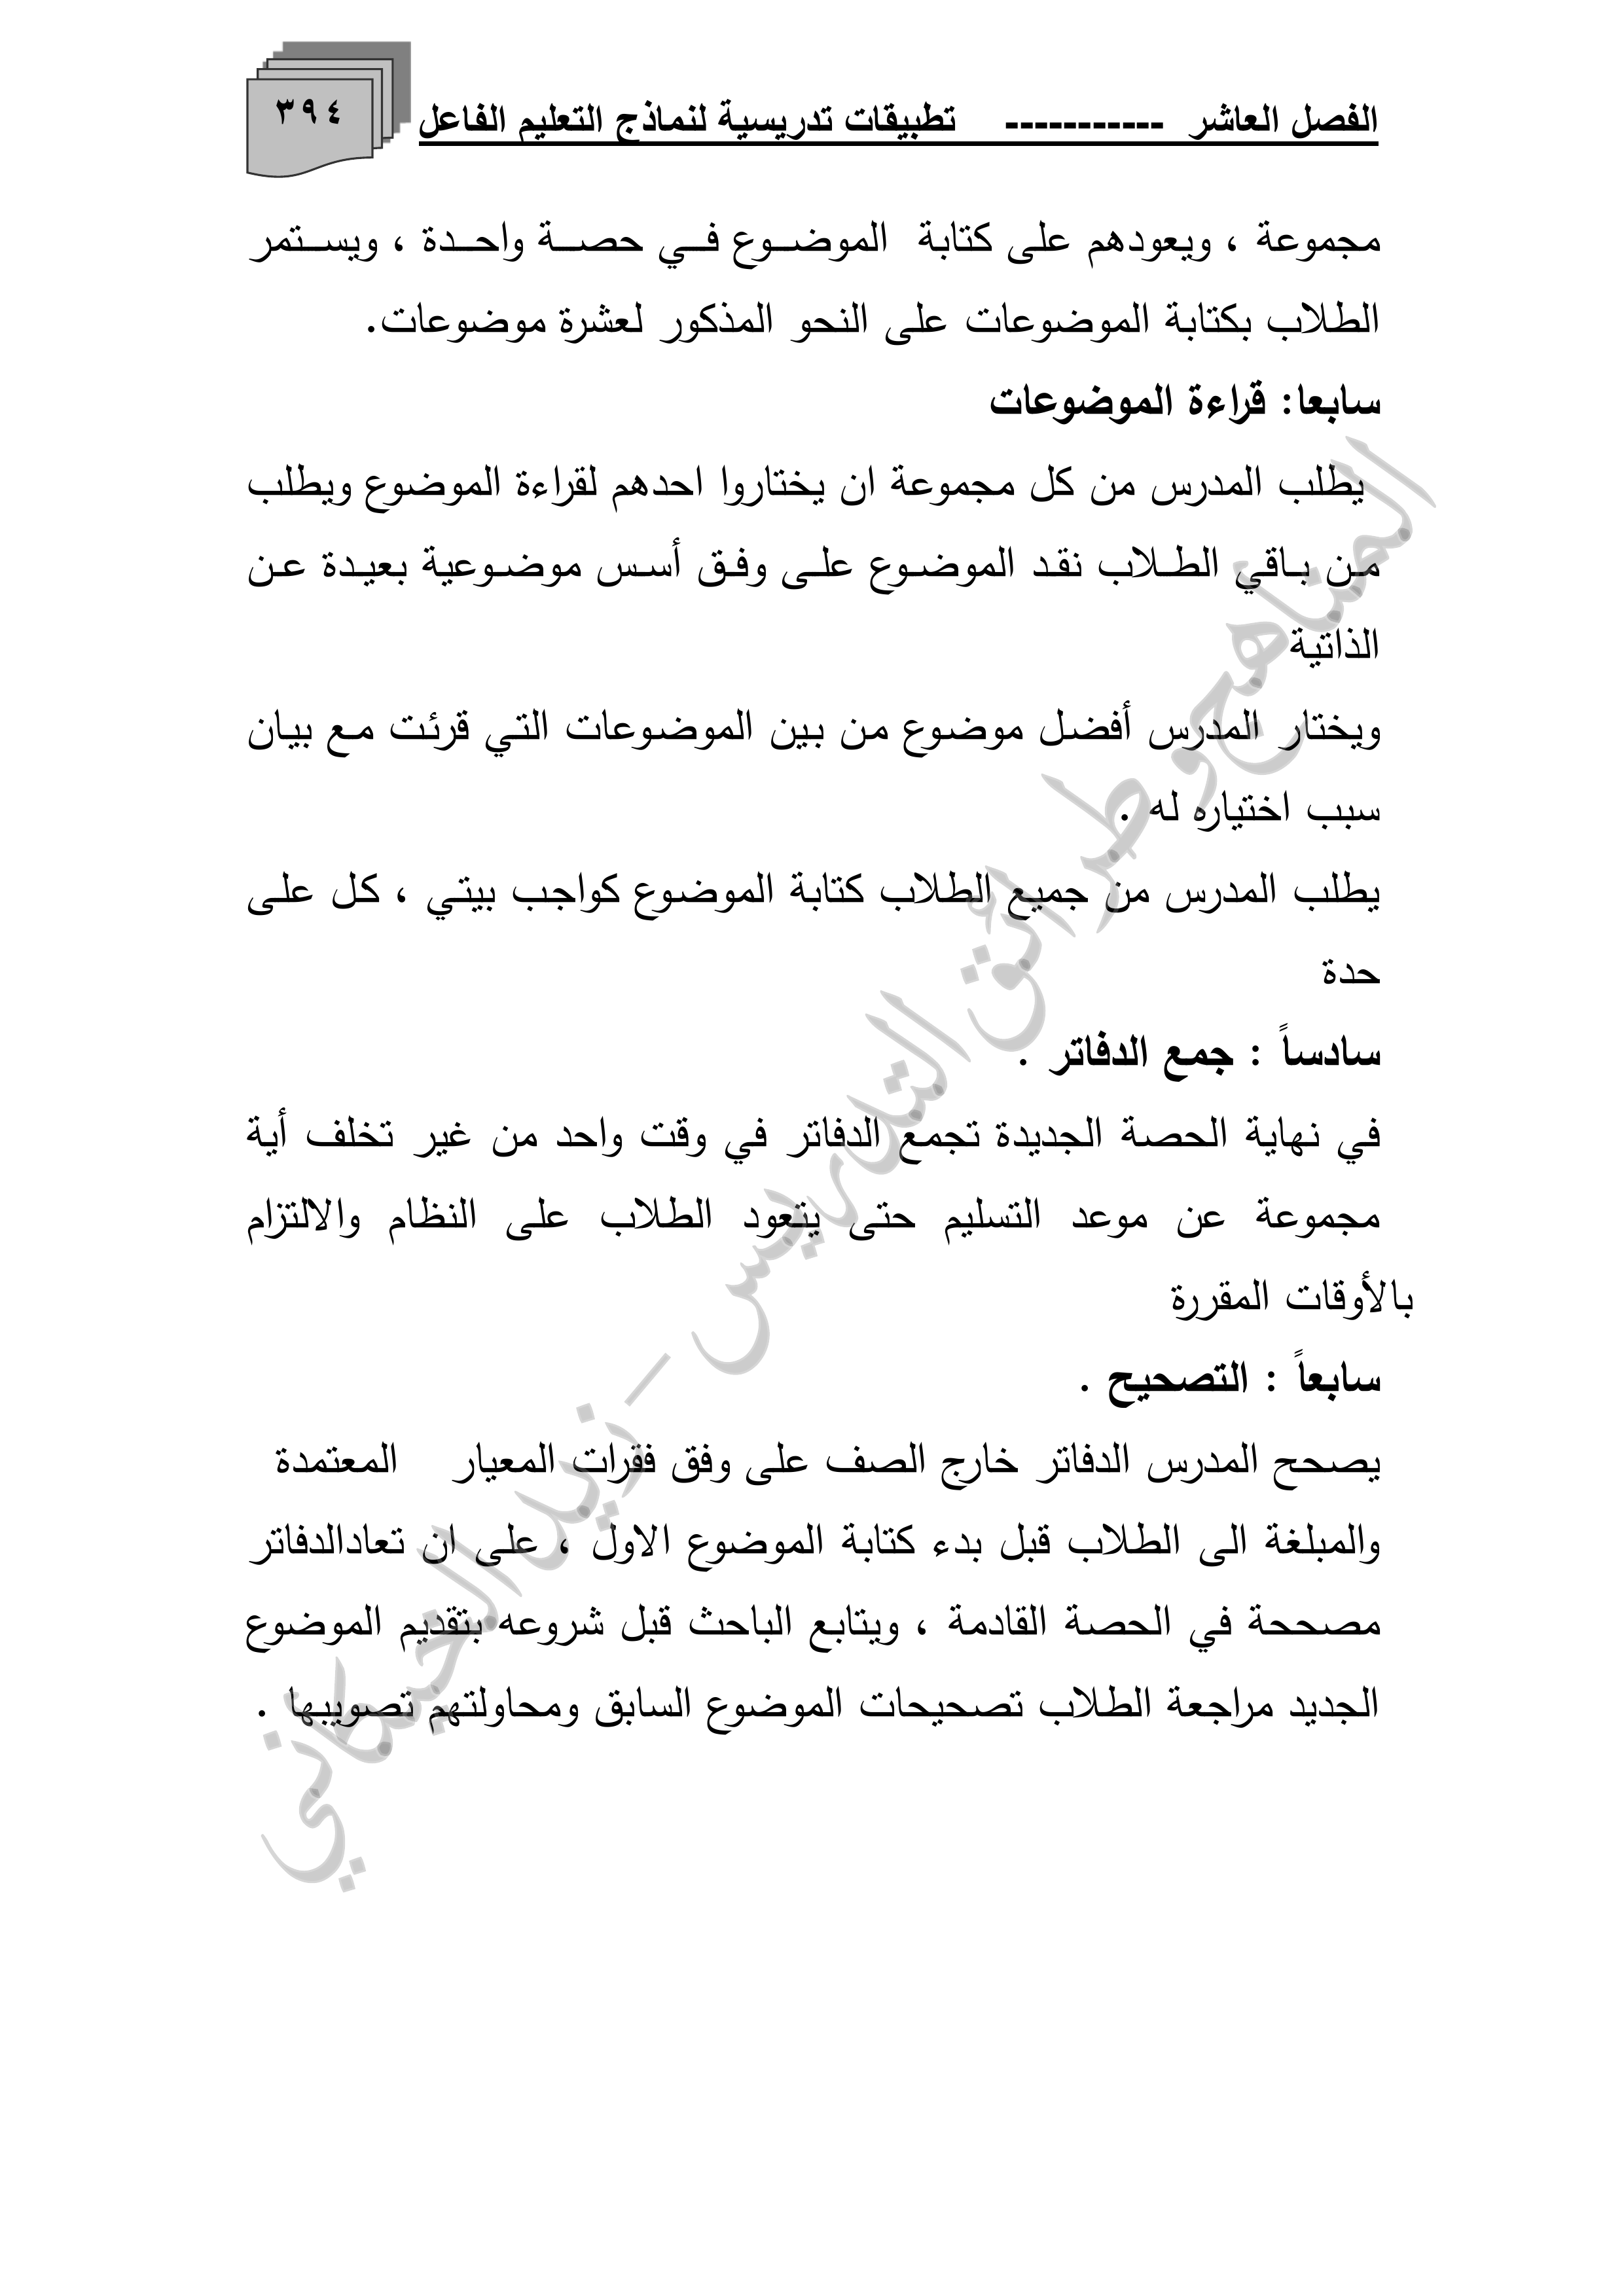 الفصل العاشر ----------- تطبيقات تدريسية لنماذج التعليم الفاعل
٣٩٤
مجموعة ، ويعودهم على كتابة الموضوع في حصة واحدة ، ويستمر
الطلاب بكتابة الموضوعات على النحو المذكور لعشرة موضوعات.
سابعا: قراءة الموضوعات
يطلب المدرس من كل مجموعة ان يختاروا احدهم لقراءة الموضوع ويطلب
من باقي الطلاب نقد الموضوع على وفق أسس موضوعية بعيدة عن
الذاتية
ويختار المدرس أفضل موضوع من بين الموضوعات التي قرئت مع بيان
سبب اختياره له .
يطلب المدرس من جميع الطلاب كتابة الموضوع كواجب بيتي ، كل على
حدة
سادساً : جمع الدفاتر .
في نهاية الحصة الجديدة تجمع الدفاتر في وقت واحد من غير تخلف أية
مجموعة عن موعد التسليم حتى يتعود الطلاب على النظام والالتزام
بالأوقات المقررة
سابعاً : التصحيح .
يصحح المدرس الدفاتر خارج الصف على وفق فقرات المعيار المعتمدة
والمبلغة الى الطلاب قبل بدء كتابة الموضوع الاول ، على ان تعادالدفاتر
مصححة في الحصة القادمة ، ويتابع الباحث قبل شروعه بتقديم الموضوع
الجديد مراجعة الطلاب تصحيحات الموضوع السابق ومحاولتهم تصويبها .
المناهج وطرائق التدريس - زيد الخيكاني